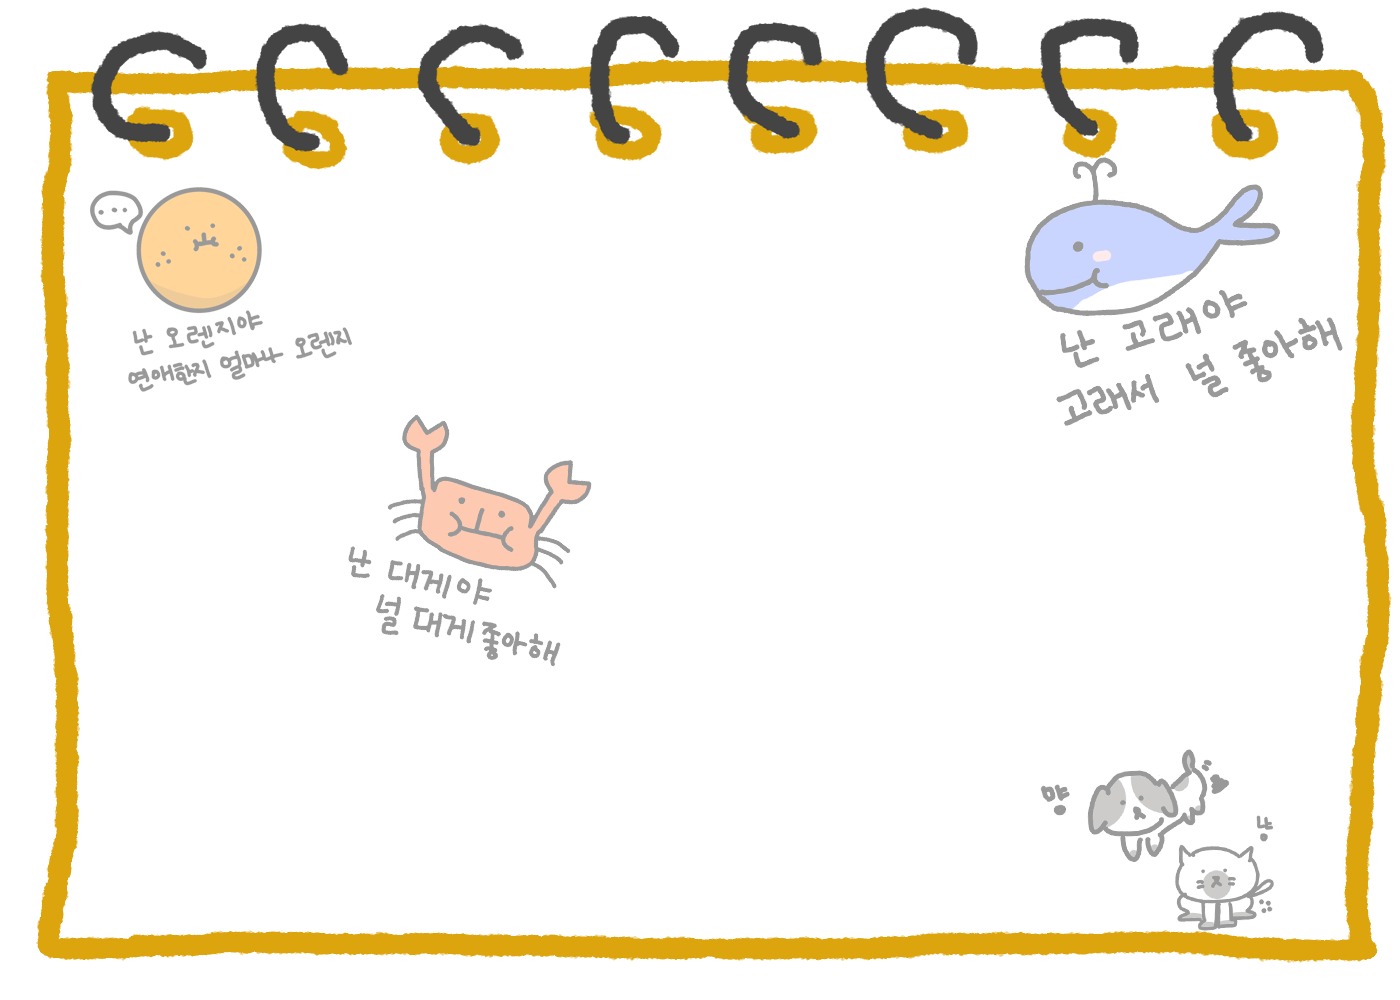 난 오렌지야
연애한지 얼마나 오렌지
난 고래야
고래서 널 좋아해
난 대게야
널 대게 좋아해
먕
냥